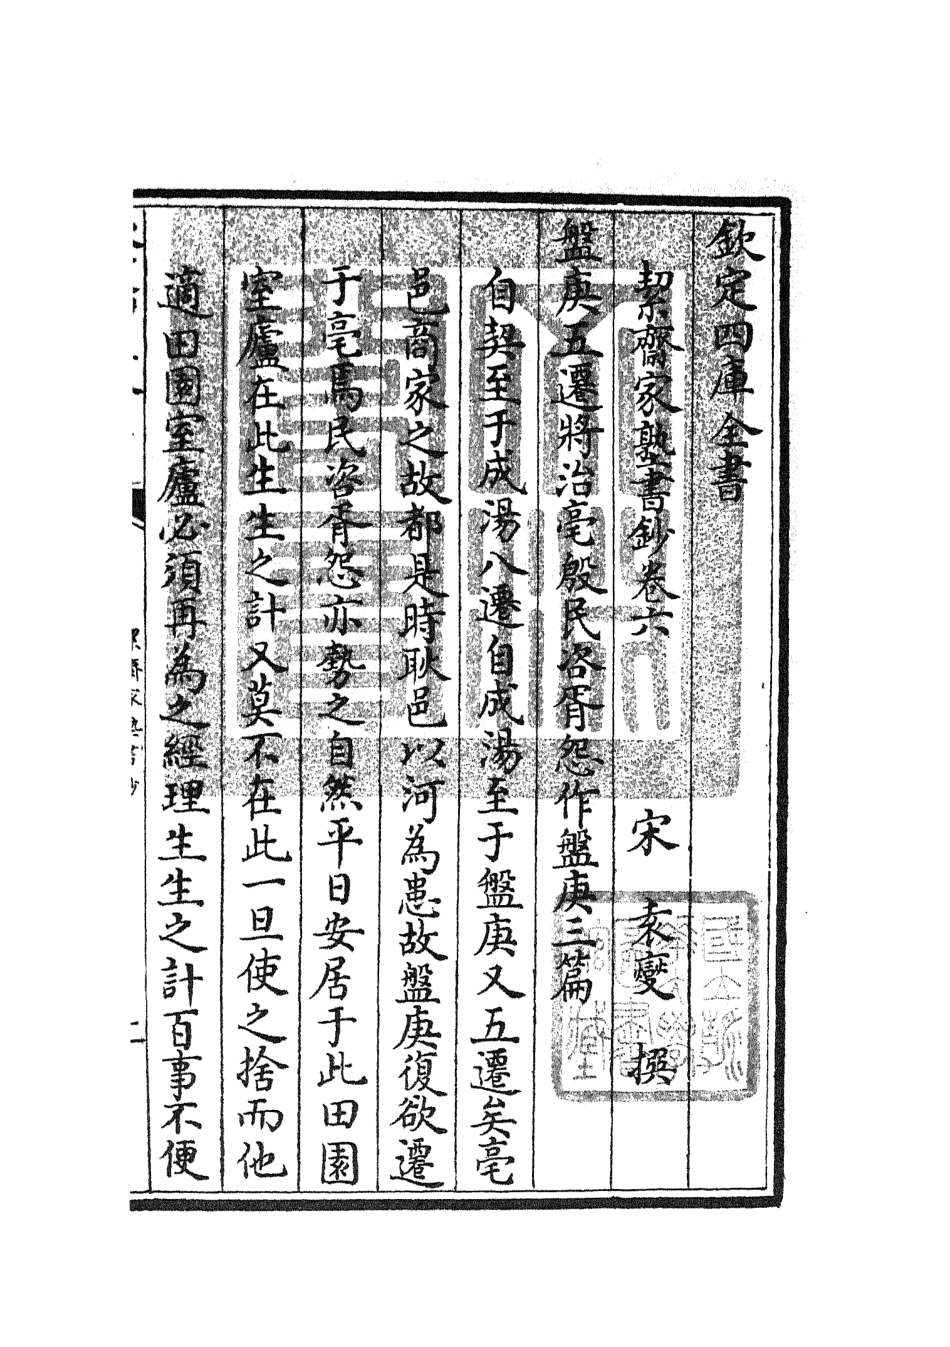 欽定四庫全書
絜齋家塾書鈔卷六　宋　袁燮　撰
盤庚五遷將治亳殷民咨胥怨作盤庚三篇
自契至于成湯八遷自成湯至于盤庚又五遷矣亳
邑商家之故都是時耿邑以河為患故盤庚復欲遷
于亳焉民咨胥怨亦勢之自然平日安居于此田園
室廬在此生生之計又莫不在此一旦使之捨而他
適田園室廬必須再為之經理生生之計百事不便